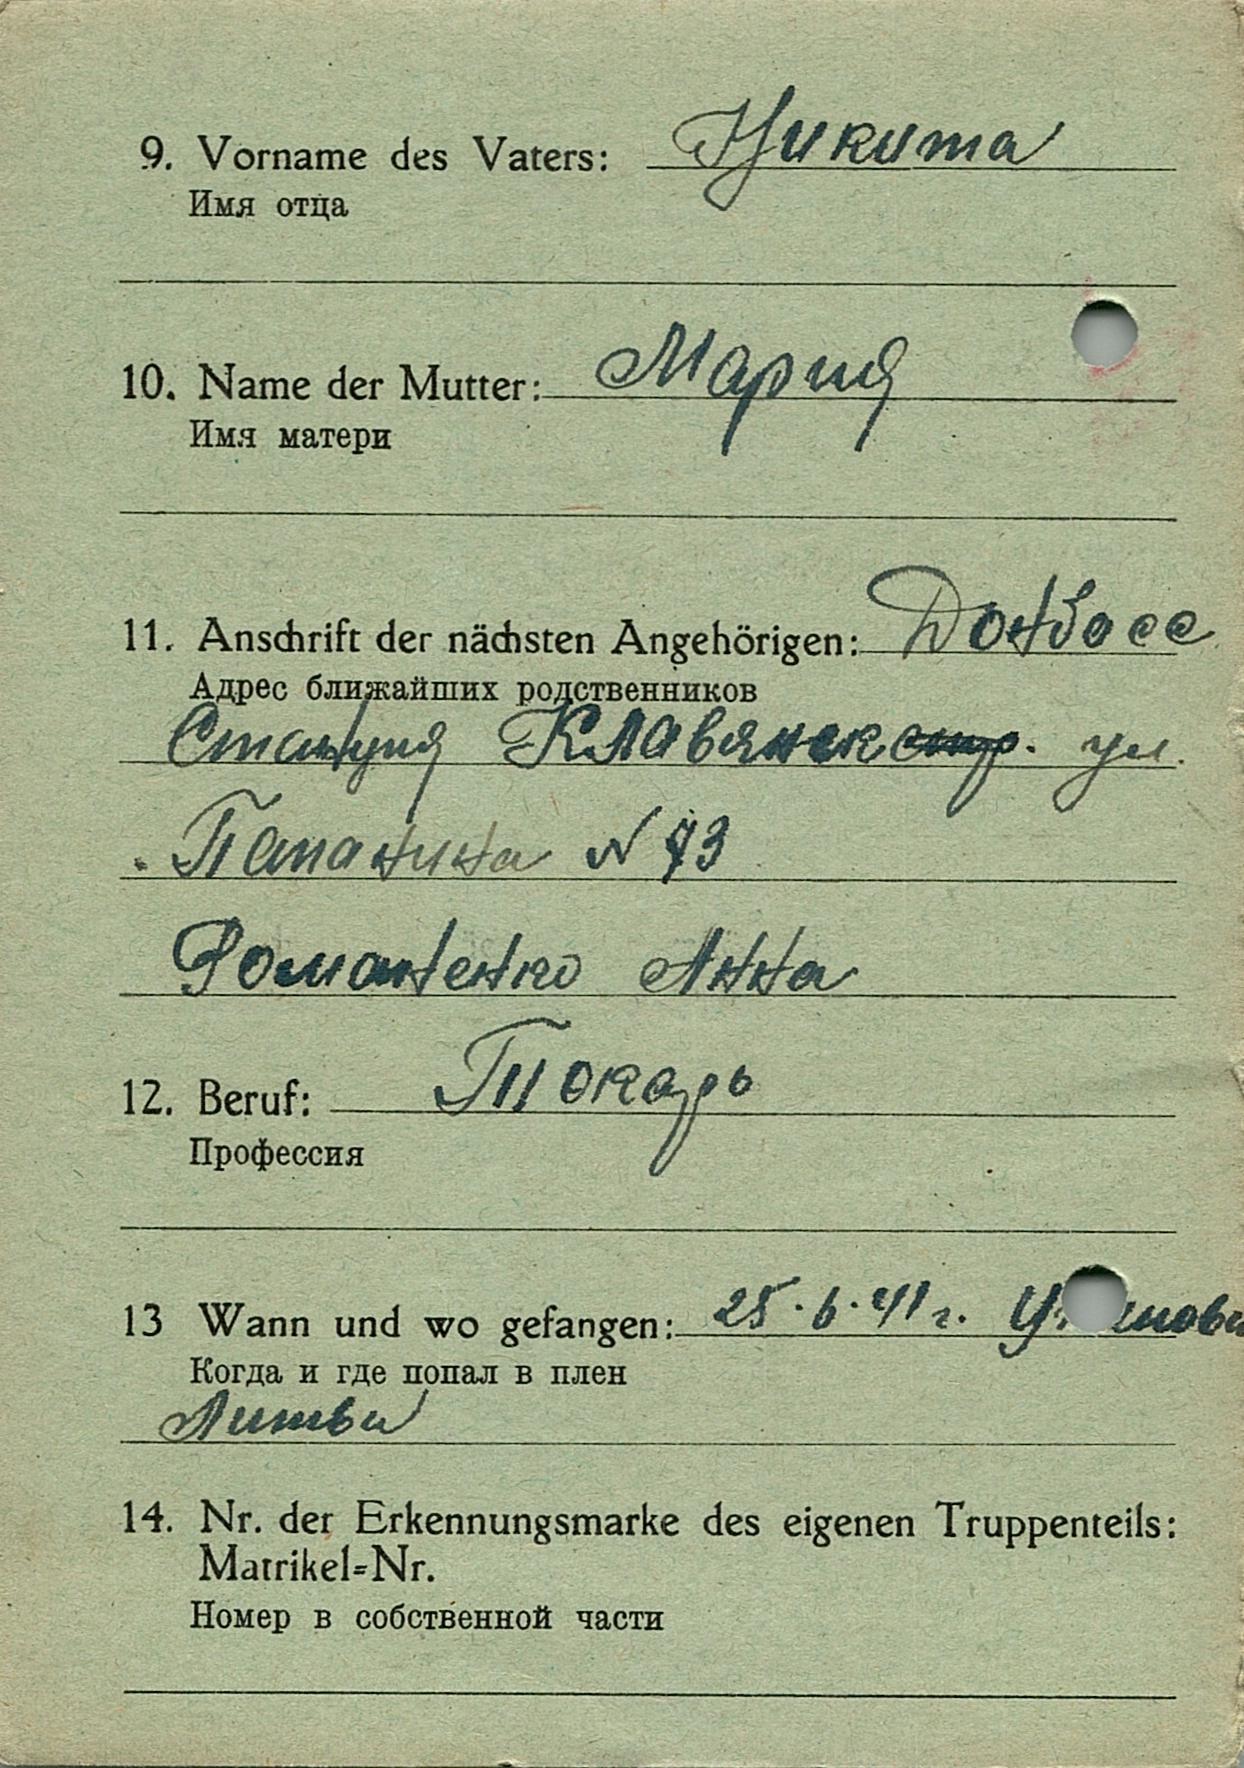 9. Vorname des Vaters: Никита
Имя отца
10. Name der Mutter: Мария
Имя матери
11. Anschrift der nächsten Angehörigen: Донбасс
Адрес ближайших родственников
Станция Клавянск ул.
Папанина N 73
Романенко Анна
12. Beruf: Токарь
Профессия
13 Wann und wo gefangen: 25.6.41 г.
Когда и где попал в плен
Литви
14. Nr. der Erkennungsmarke des eigenen Truppenteils:
Matrikel=Nr.
Номер в собственной части